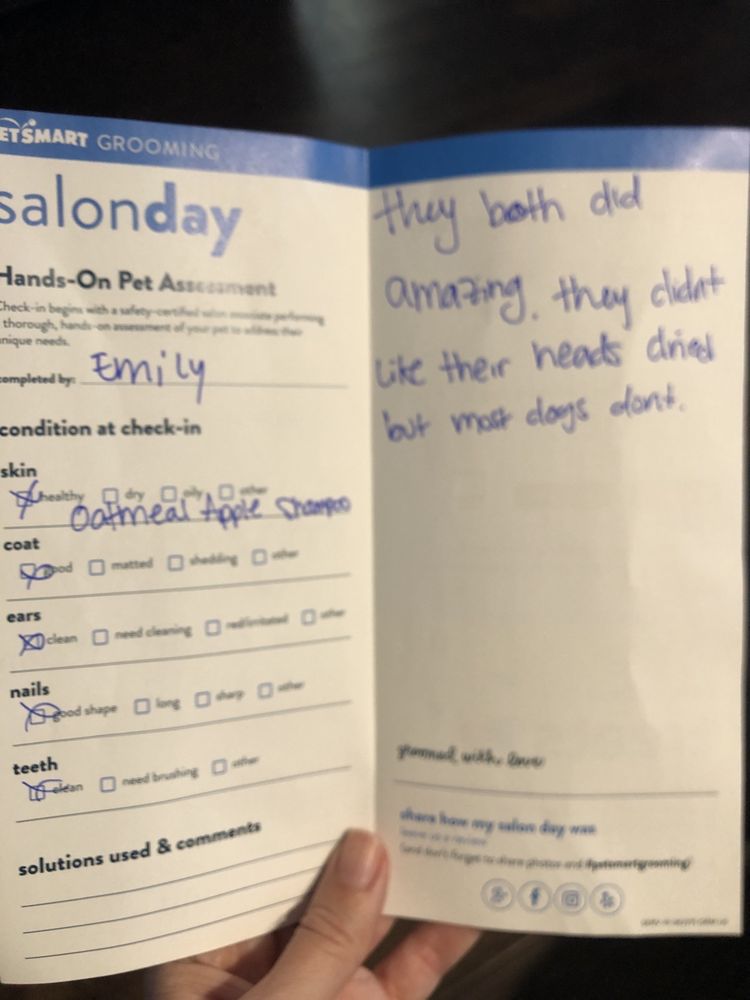 ETSMART GROOMING
salonday
Hands-On Pet Assessment
Check-in begins with a safety-certified salon associate performing
thorough, hands-on assessment of your pet to address their
nique needs.
completed by: Emily
condition at check-in
skin
healthy dry oily other
Oatmeal Apple Shampoo
coat
good matted shedding other
ears
clean need cleaning red/irritated other
nails
good shape long sharp other
teeth
clean need brushing other
solutions used & comments
they both did
amazing. they didnt
like their heads dried
but most dogs dont.
groomed with love
share how my salon day was
leave us a review
(and don't forget to share photos and #petsmartgrooming)